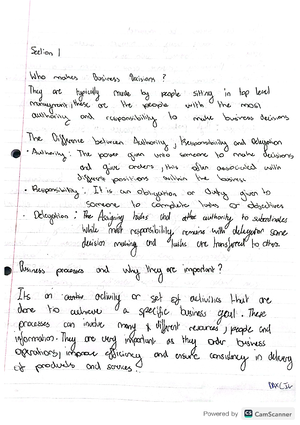 Section 1
Who makes Business Decisions ?
They are typically made by people sitting in top level
management, these are the people with the most
authority and responsibility to make business decisions
The Difference between Authority, Responsibility and Delegation
• Authority : The power given unto someone to make decisions
and give orders, this often associated with
different positions within the business
• Responsibility : It is an obligation or duty given to
someone to complete tasks or objectives
• Delegation : The Assigning tasks and other authority to subordinates
While most responsibility remains with delegation some
decision making and tasks are transferred to others
Business processes and why they are important?
Its an activity or set of activities that are
done to achieve a specific business goal. These
processes can involve many & different resources, people and
information. They are very important as they order business
operations, improve efficiency and ensure consistency in delivery
of products and services.
Powered by CS CamScanner